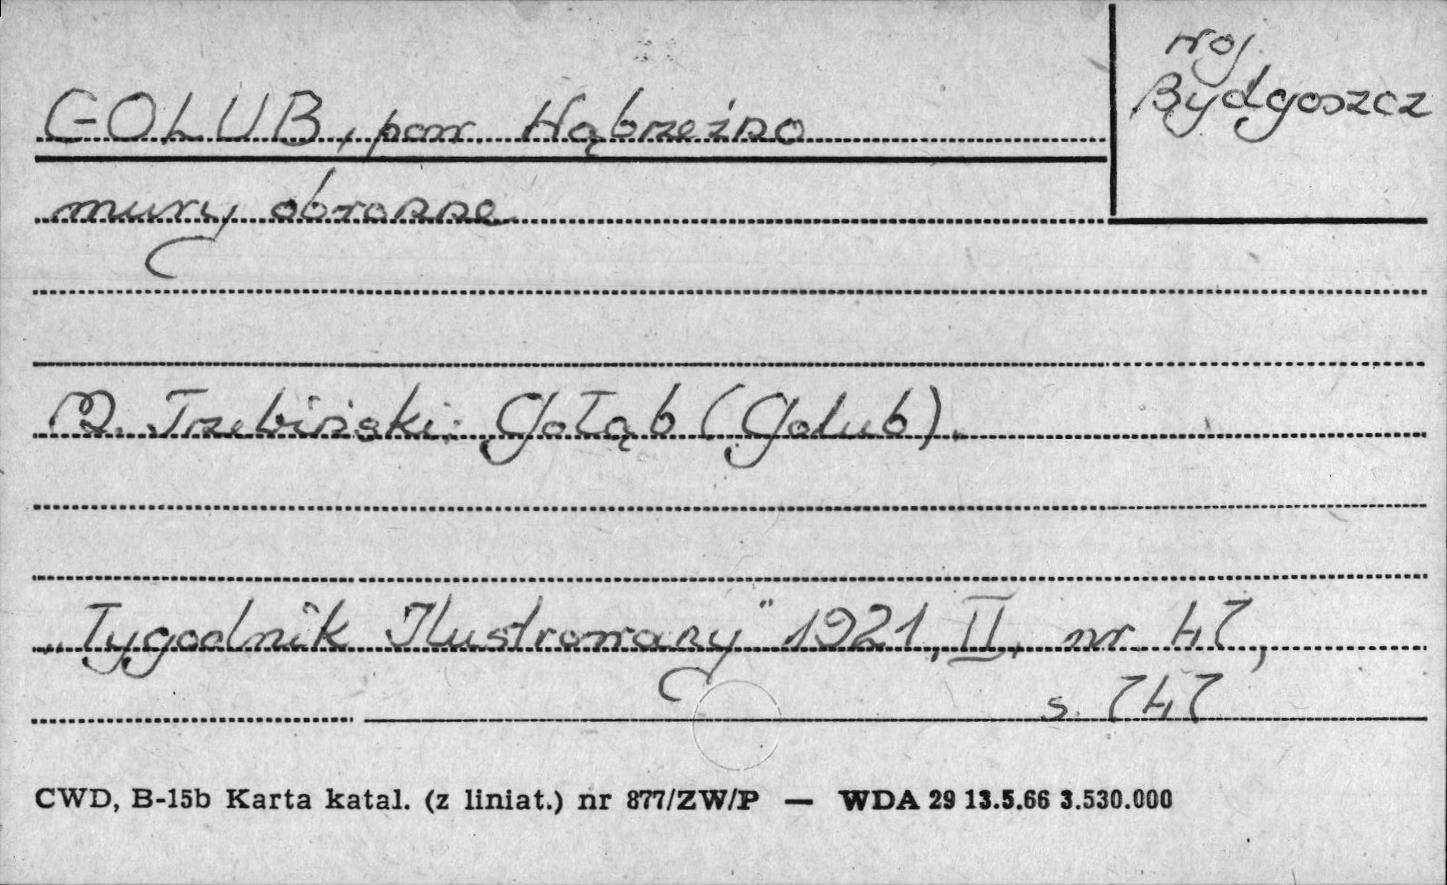 woj.
Bydgoszcz
GOLUB, pow. Wąbrzeźno
mury obronne
M. Trzebiński: Gołąb (Golub).
„Tygodnik Ilustrowany" 1921, II, nr 47,
s. 747
CWD, B-15b Karta katal. (z liniat.) nr 877/ZW/P — WDA 29 13.5.66 3.530.000